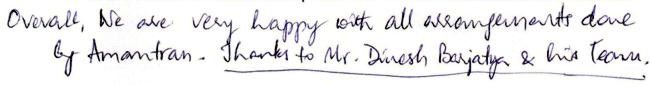 Overall, We are very happy with all arrangements done
by Amantran. Thanks to Mr. Dinesh Barjatya & his Team.